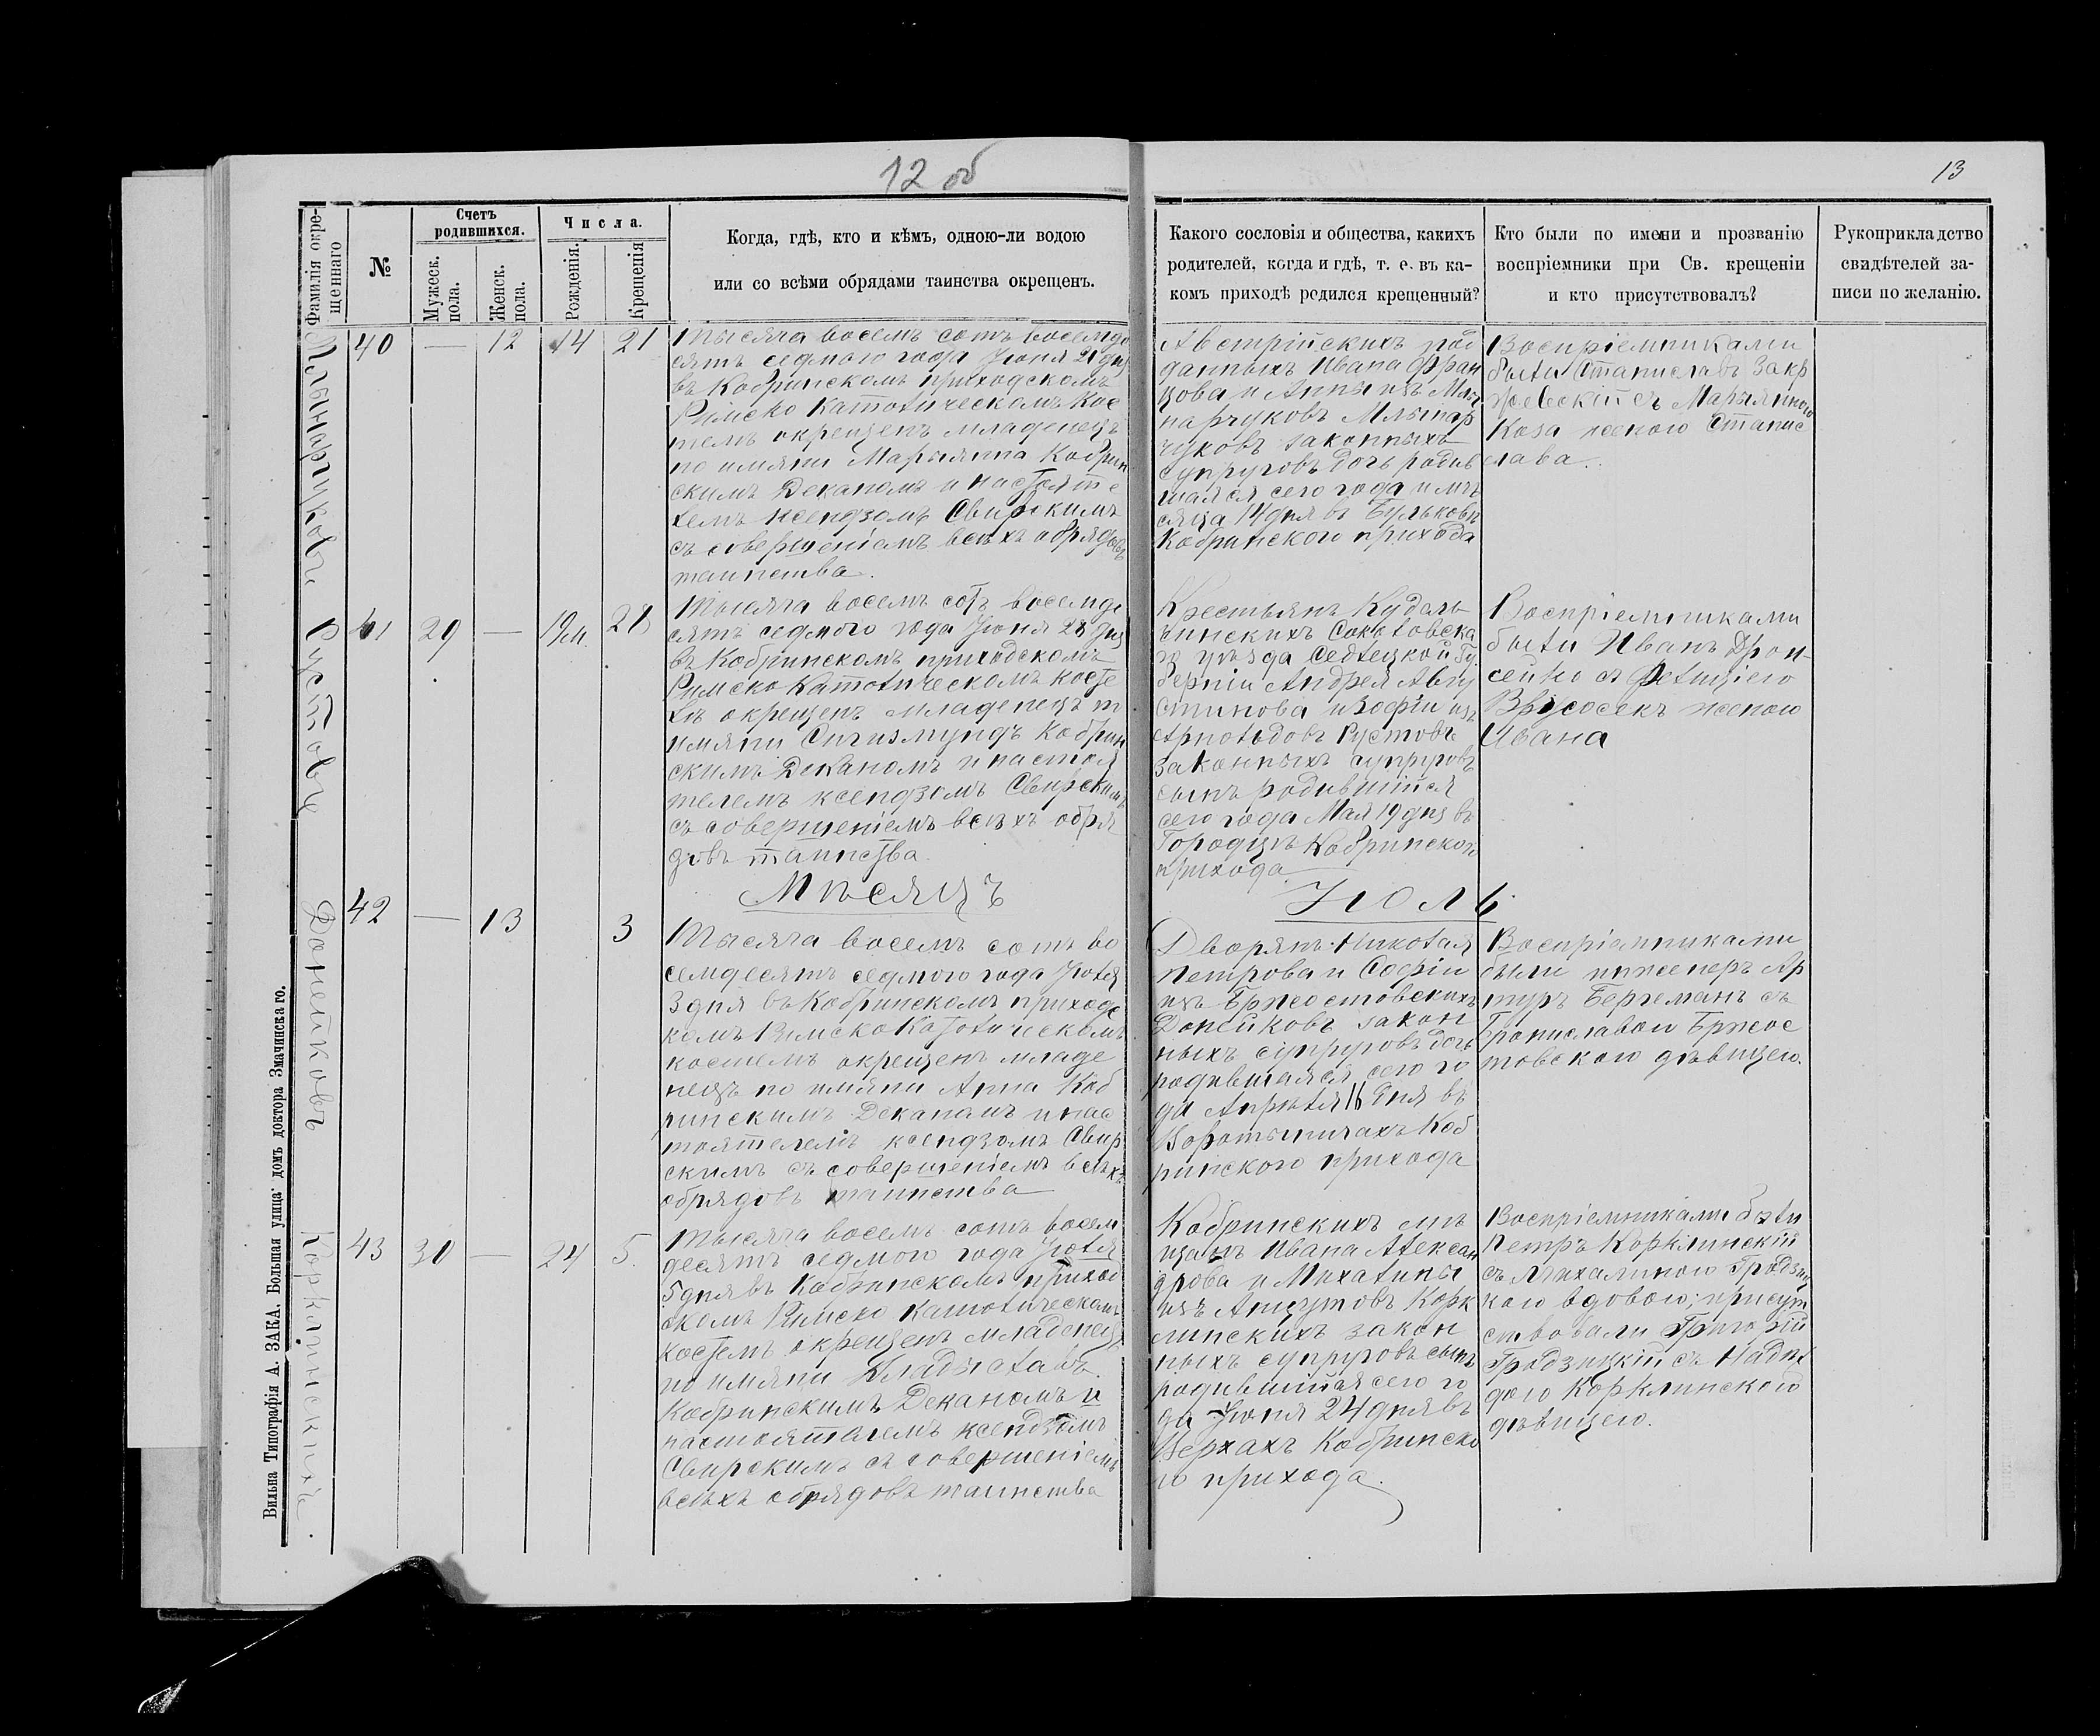 12 об
13
Фамилія окрещеннаго
№
Счетъ родившихся.
Мужеск. пола.
Женск. пола.
Числа.
Рожденія.
Крещенія
Когда, гдѣ, кто и кѣмъ, одною-ли водою
или со всѣми обрядами таинства окрещенъ.
Какого сословія и общества, какихъ
родителей, когда и гдѣ, т. е. въ ка-
комъ приходѣ родился крещенный?
Кто были по имени и прозванію
воспріемники при Св. крещеніи
и кто присутствовалъ?
Рукоприкладство
свидѣтелей за-
писи по желанію.
40 — 12 14 21
Тысяча восемъ сотъ восемде
сятъ седмого года Іюня 21 дня
въ Кобринскомъ приходскомъ
Римско Католическомъ Кос
телѣ окрещенъ младенецъ
по имяни Марьянна Кобрин
скимъ Деканомъ и настояте
лемъ Ксендзомъ Свирскимъ
съ совершеніемъ всѣхъ обрядовъ
таинства.
Австрійскихъ под
данныхъ Ивана Фран
цова и Анны изъ Млы
нарчуковъ Млынар
чуковъ законныхъ
супруговъ дочь родив
шаяся сего года и мѣ
сяца 14 дня въ Бульковѣ
Кобринского прихода
Воспріемниками
были Станиславъ Закр
жевскій съ Марьянною
Коза женою Станис
лава.
Рустовъ
41 29 — 19 м. 28
Тысяча восемъ сотъ восемде
сятъ седмого года Іюня 28 дня
въ Кобринскомъ приходскомъ
Римско Католическомъ косте
лѣ окрещенъ младенецъ по
имяни Сигизмундъ Кобрин
скимъ Деканомъ и настоя
телемъ ксендзомъ Свирскимъ
съ совершеніемъ всѣхъ обря
довъ таинства.
Крестьянъ
Соколовска
го уѣзда Седлецкой Гу
берніи Андрея Авгу
стинова и Зофіи изъ
Арнольдовъ Рустовъ
законныхъ супруговъ
сынъ родившійся
сего года Мая 19 дня въ
Городцѣ Кобринского
прихода
Воспріемниками
были Иванъ Дрон-
сейко съ Фелиціею
женою
Ивана
Мѣсяцъ Іюль
Донейковъ
42 — 13 3
Тысяча восемъ сотъ во
семдесятъ седмого года Іюля
3 дня въ Кобринскомъ приходс
комъ Римско Католическомъ
костелѣ окрещенъ младе
нецъ по имяни Анна Коб
ринскимъ Деканомъ и нас
тоятелемъ ксендзомъ Свир
скимъ съ совершеніемъ всѣхъ
обрядовъ таинства
Дворянъ Николая
Петрова и Софіи
изъ Бржостовскихъ
Донейковъ закон
ныхъ супруговъ дочь
родившаяся сего го
да Апрѣля 16 дня въ
Воротыничахъ Коб
ринского прихода
Воспріемниками
были инженеръ Ар
туръ Бергеманъ съ
Брониславою Бржос
товскою дѣвицею.
Корклинскихъ.
43 30 — 24 5.
Тысяча восемъ сотъ восем
десятъ седмого года Іюля
5 дня въ Кобринскомъ приход
скомъ Римско Католическомъ
костелѣ окрещенъ младенецъ
по имяни Владиславъ
Кобринскимъ Деканомъ и
настоятелемъ ксендзомъ
Свирскимъ съ совершеніемъ
всѣхъ обрядовъ таинства
Кобринскихъ мѣ
щанъ Ивана Алексан
дрова и Михалины
изъ Анцутовъ Корк
линскихъ закон
ныхъ супруговъ сынъ
родившійся сего го
да Іюня 24 дня въ
Верхахъ Кобринско
го прихода.
Воспріемниками были
Петръ Корклинскій
съ Михалиною Гродзиц
кою вдовою; присут
ствовали Григорій
Гродзицкій съ Надѣж
дою Корклинскою
дѣвицею.
Вильна Типографія А. ЗАКА. Большая улица домъ доктора Змачинскаго.